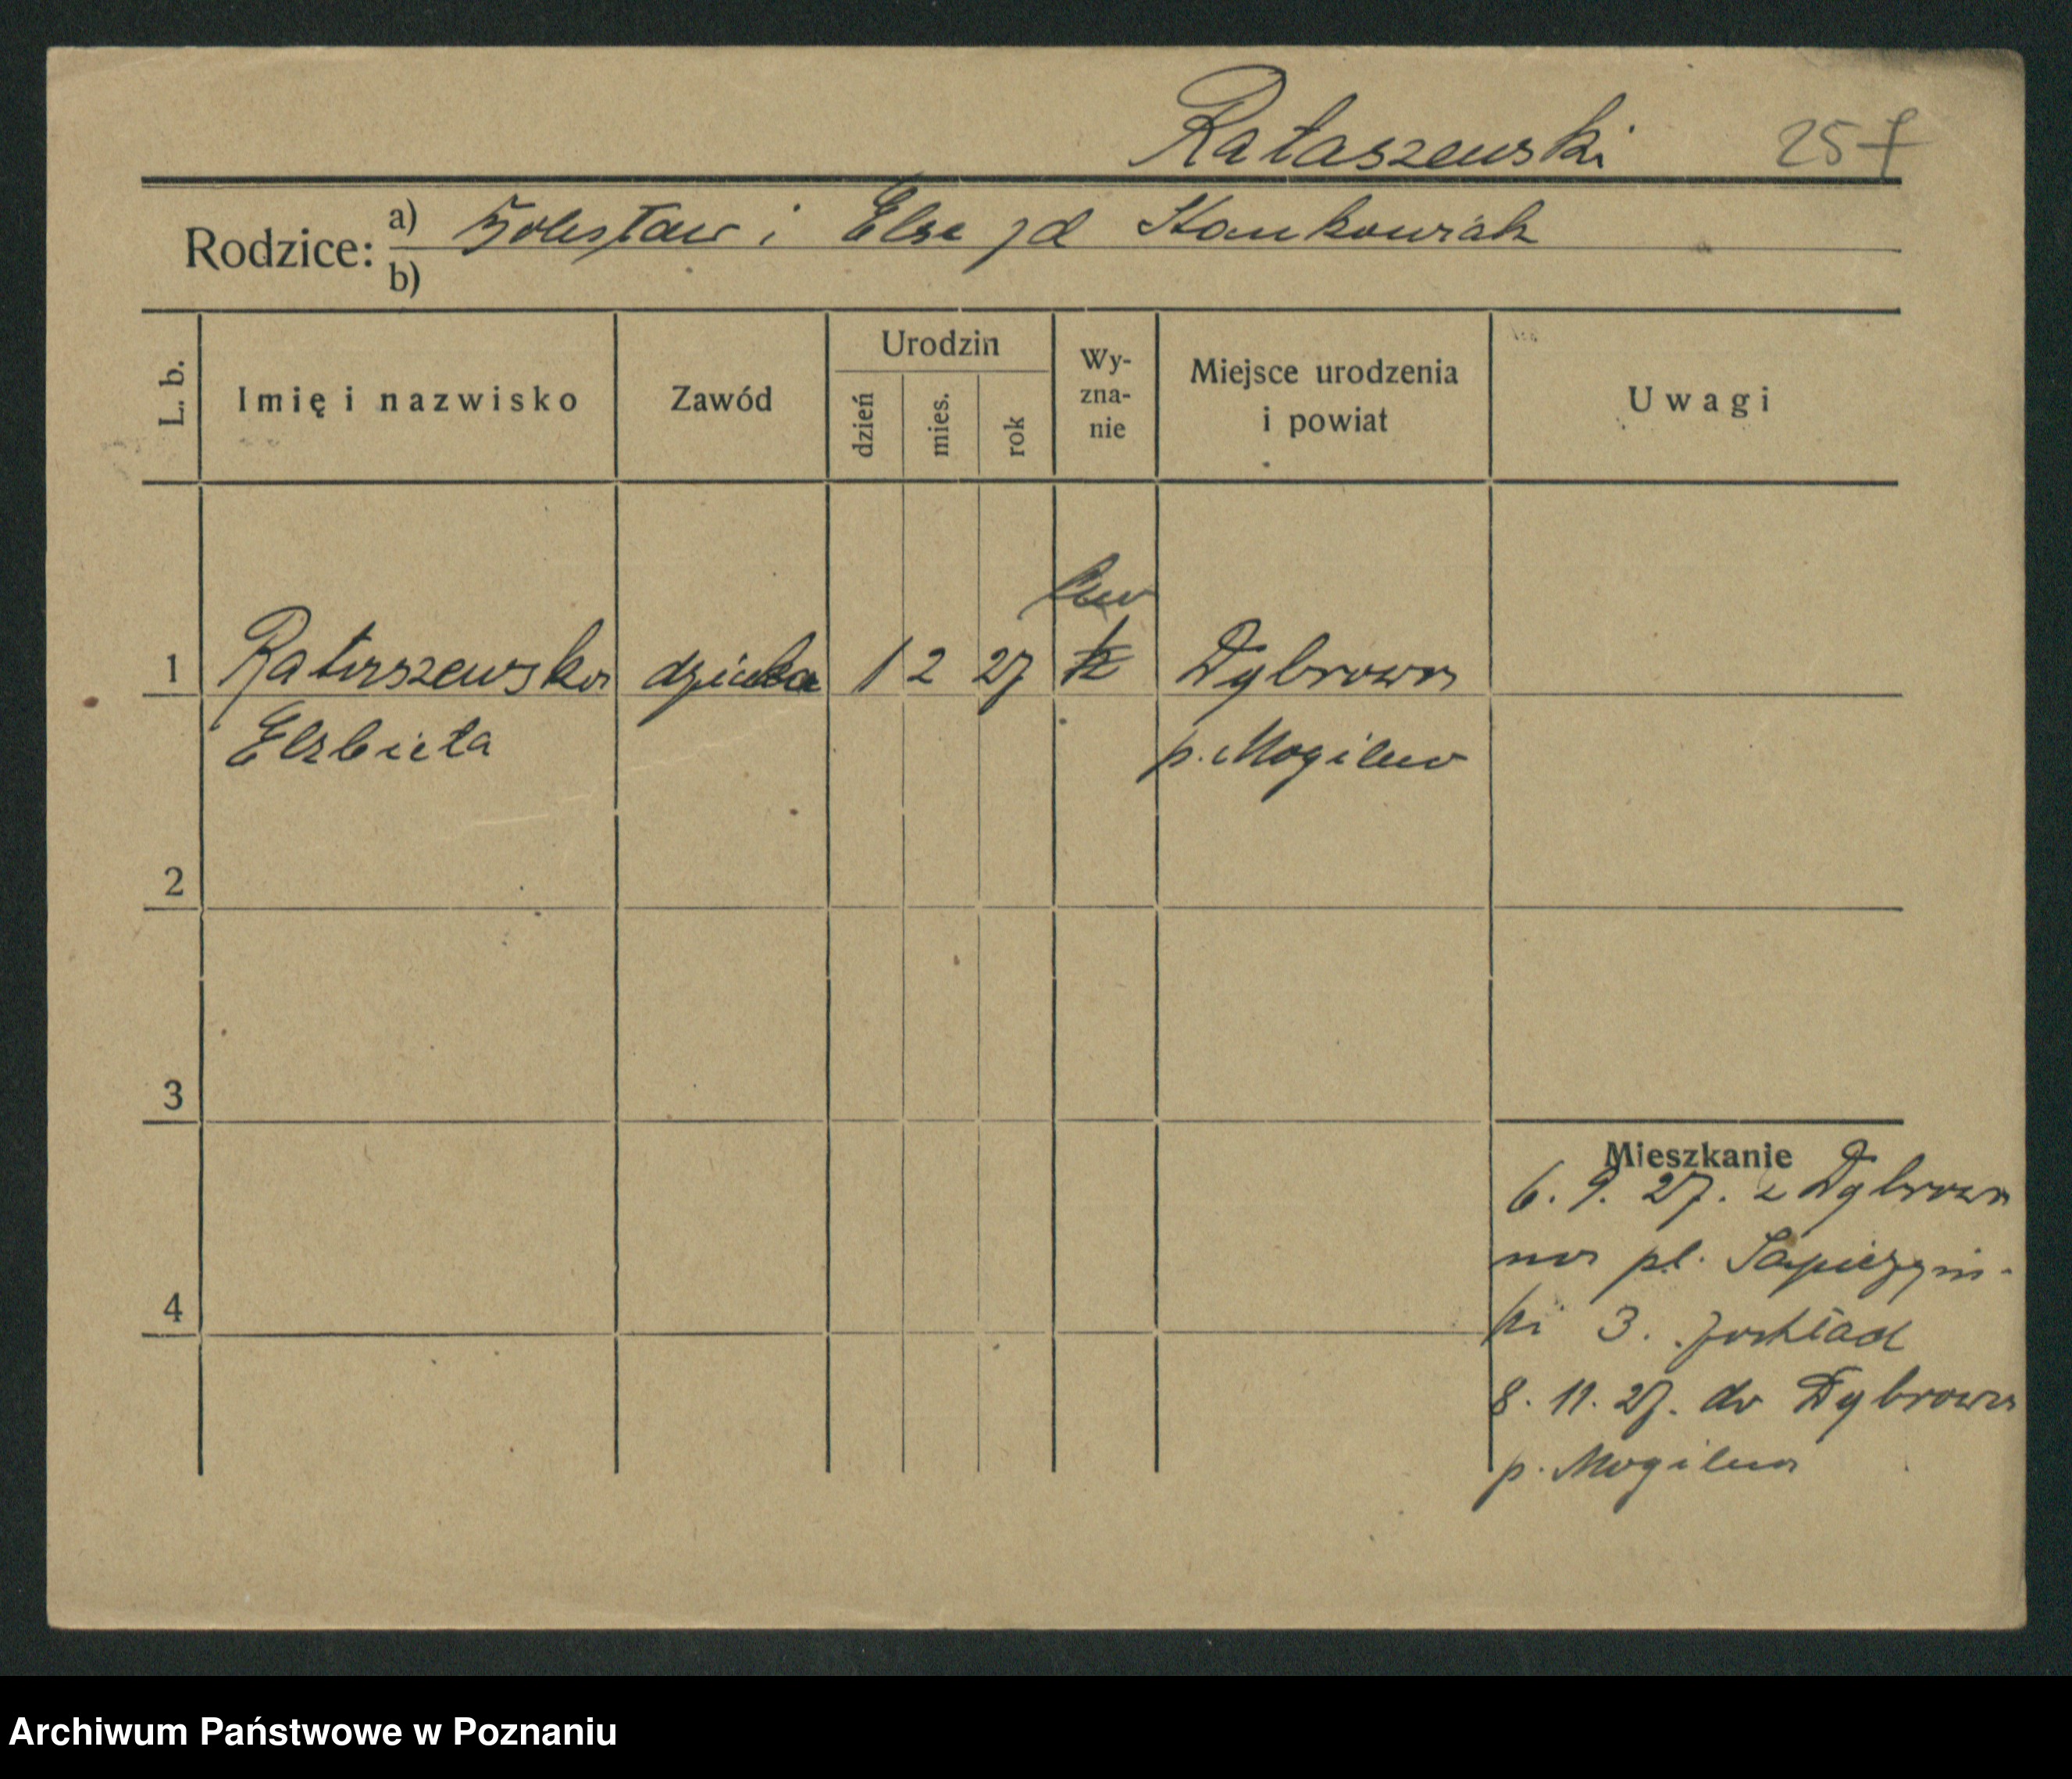 Rataszewski 257
Rodzice: a) Bolesław i Else zd Stankowiak
b)
L. b. Imię i nazwisko Zawód Urodzin dzień mies. rok Wyznanie Miejsce urodzenia i powiat Uwagi
ew
1 Rataszewska dziecko 1 2 27 k Dąbrowa
Elzbieta p. Mogilno
2
3
Mieszkanie
6. 9. 27. z Dąbrowa
na pl. Sapieżyń-
4 ki 3.
8. 11. 27. do Dąbrowa
p. Mogilno
Archiwum Państwowe w Poznaniu